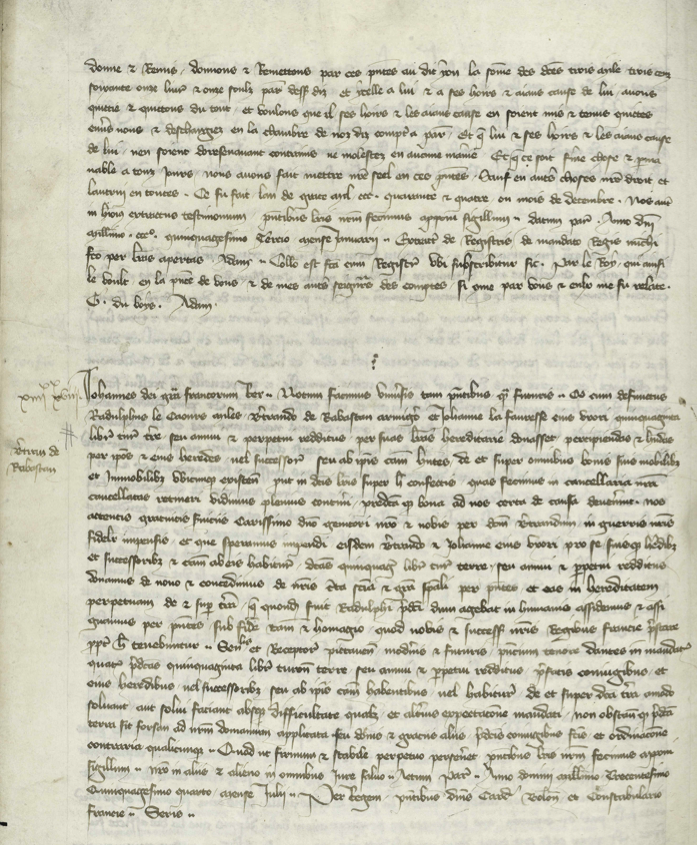 donne et Remis donnons et Remettons par ces presentes au dit Jehan la somme des dites trois mile trois cens
soixante onze livres et onze soulz par dessus diz et ycelle a lui et a ses hoirs et aians cause de lui avons
quittie et quittons du tout et voulons que il ses hoirs et les aians cause en soient mis et tenus quittes
envers nous et deschargiez en la chambre de noz diz comptes a par Et que lui et ses hoirs et les aians cause
de lui nen soient doresenavant contrains ne molestez en aucune maniere Et que ce soit ferme chose et
nable a touz jours nous avons fait mettre nostre seel en ces presentes Sauf en autres choses nostre droit et
lautrui en toutes Ce fu fait lan de grace mil ccc quarante et quatre ou mois de decembre Nos autem
in huius extractus testimonium presentibus litteris nostrum fecimus apponi sigillum datum par Anno domini
millimo ccco quinquagesimo Tercio mense Januarij Extractum de Registris de mandato Regis michi
facto per litteras apertas Adam Collatio est facta cum Registro ubi subscribitur sic Par le Roy qui ainsi
le voult en la presence de vous et de mes autres seigneurs des comptes si comme par vous et me fu relate
G. du boys. Adam
xiiij xviij
Johannes dei gracia francorum Rex Notum facimus universis tam presentibus quam futuris Quod cum defunctus
Radulphus le Caours miles Bertrando de Rabastan armigero et Johanne la eius uxori quinquaginta
libras terre seu annui et perpetui redditus per suas litteras hereditarie donasset percipiendas et habendas
Bertran de
Rabastan
per ipsos et eius heredes vel successores seu ab ipsis causam habentes de et super omnibus bonis suis mobilibus
et Immobilibus ubicumque existentibus prout in dictis litteris super hoc confectis quas fecimus in cancellaria nostra
cancellatas retineri vidimus plenius contineri que bona ad nos certa de causa devenerunt nos
attentis gratuitis serviciis Carissimo domino genitori nostro et nobis per dictum Bertrandum in guerris nostris
fideliter impensis et que speramus impendi eisdem Bertrando et Johanne eius uxori pro se suisque heredibus
et successoribus et causam ab eis habituris dictas quinquaginta libras terre seu annui et perpetui redditus
donamus de novo et concedimus de nostris certa sciencia et gracia speciali per presentes et eas in hereditatem
perpetuam de et super terra que quondam fuit Radulphi predicti dum agebat in humanis assidemus et assi
gnamus per presentes sub fide et homagio quod nobis et successoribus nostris Regibus francie prestare
propter hoc tenebuntur Senescallo et Receptori pictavensi modernis et futuris presencium tenore dantes in mandatis
quatenus predictas quinquaginta libras turonenses terre seu annui et perpetui redditus prefatis coniugibus et
eius heredibus vel successoribus seu ab ipsis causam habentibus vel habituris de et super dicta terra amodo
solvant aut solvi faciant absque difficultate qualibet et alterius expectacione mandati non obstante quod predicta
terra sit forsan ad nostrum domanium applicata seu donis et graciis aliis predictis coniugibus factis et ordinacione
contraria qualicumque Quod ut firmum et stabile perpetuo perseveret presentibus litteris nostrum fecimus apponi
sigillum nostro in aliis et alieno in omnibus Jure salvo Actum Anno domini millesimo Trecentesimo
Quinquagesimo quarto mense Julii Per Regem presentibus dominis Card Bolon et Constabulario
francie Seris